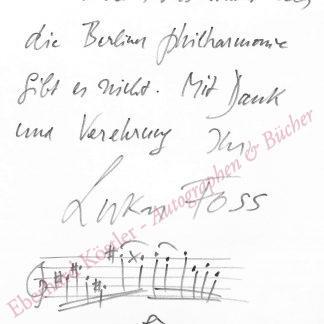 die Berliner Philharmonie
gibt es nicht. Mit Dank
und Verehrung Ihr
Lukas Foss
Eberhard Köstler - Autographen & Bücher